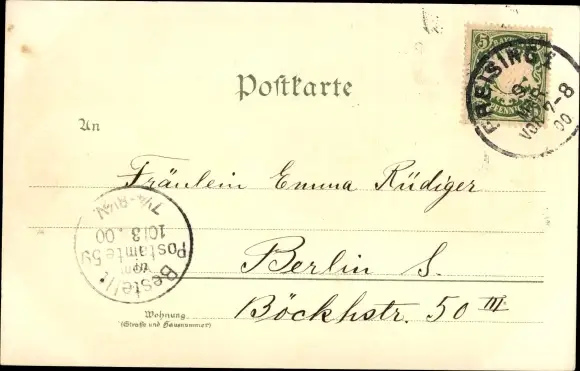 5
FREISING 1
VOR. 7-8
00
Postkarte
An
Fräulein Emma Rüdiger
Berlin S.
Böckhstr. 50 III
Wohnung
(Straße und Hausnummer)
Bestellt
vom
Postamte 59
10/3.00